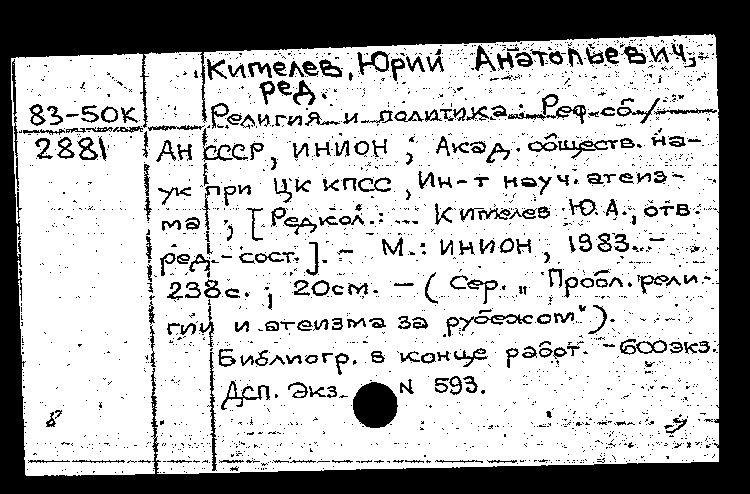 Кимелев, Юрий Анатольевич,
ред.
83-50К Религия и политика: Реф. сб. /
2881 АН СССР, ИНИОН ; Акад. обществ. на-
ук при ЦК КПСС, Ин-т науч. атеиз-
ма ; [Редкол.: ... Кимелев Ю.А., отв.
ред.-сост.]. - М.: ИНИОН, 1983. -
238с. ; 20см. - (Сер. „Пробл. рели-
гии и атеизма за рубежом").
Библиогр. в конце работ. - 600экз.
ДСП. Экз. N 593.
8